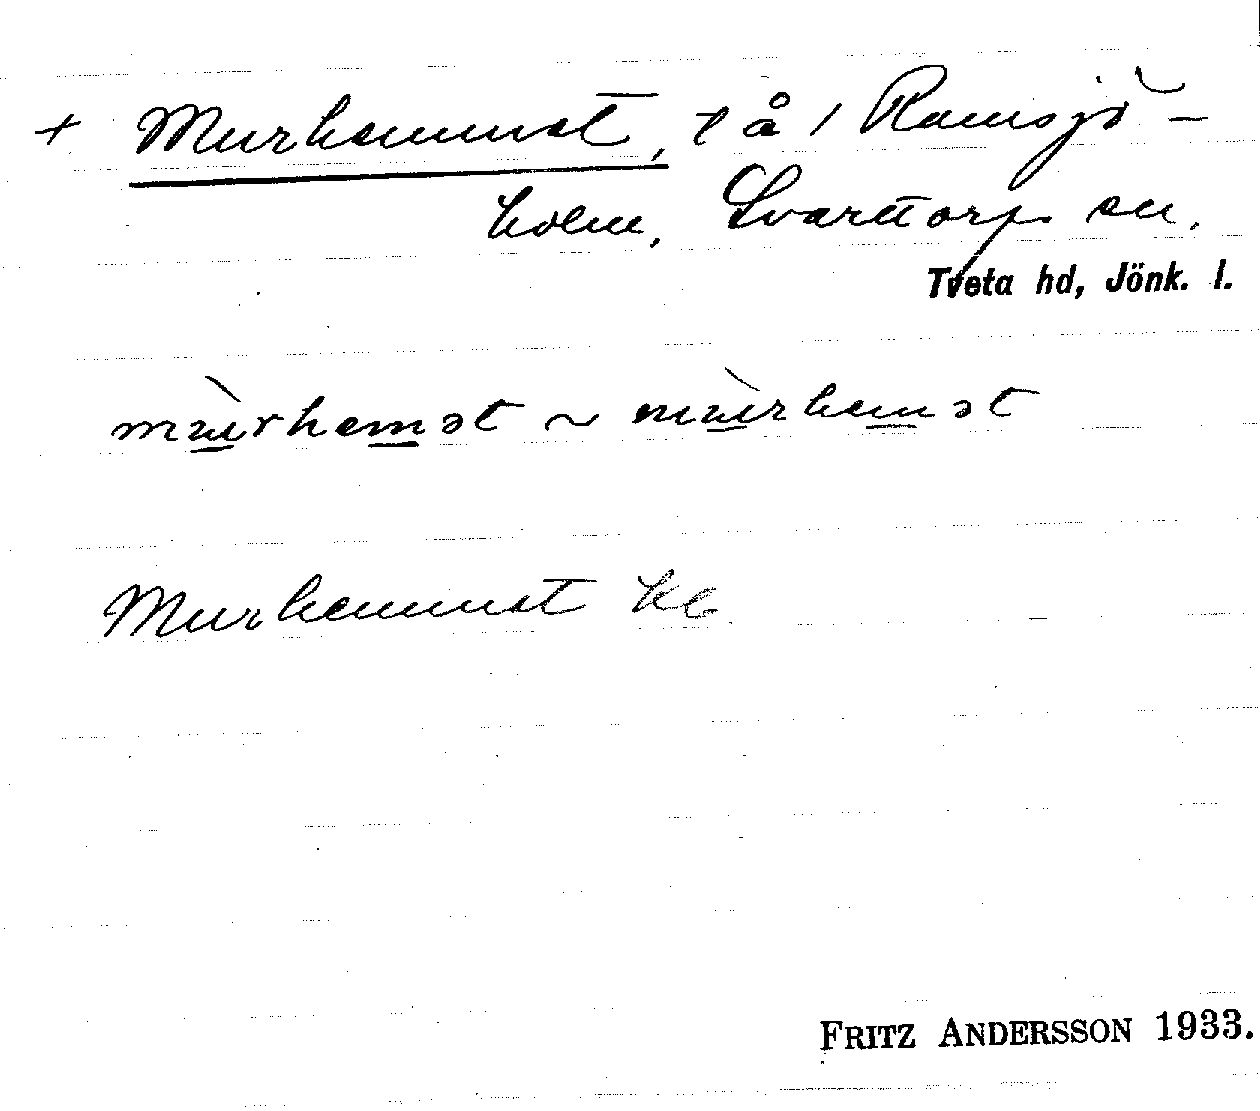 + Murhemmet, t å 1 Ramsjö-
holm, Svarttorp sn.
Tveta hd, Jönk. l.
mùrhemət ~ mùrhemət
Murhemmet
FRITZ ANDERSSON 1933.